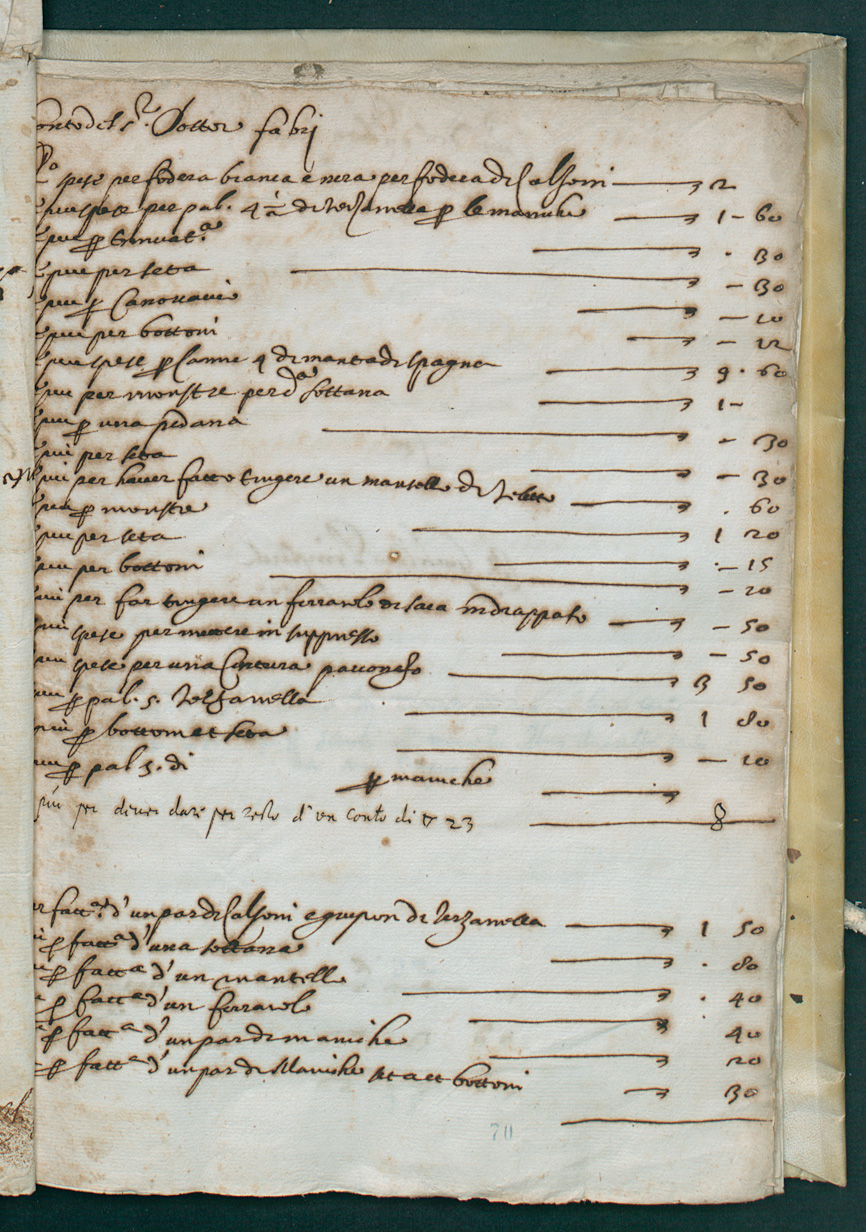 onto del s.r Dottor fabrj
P.o spese per fodera bianca e nera per fodera di Calsoni 2
piu spese per pal. 4 di terzanella p le maniche 1-60
piu p 30
piu per seta -30
piu p Canovacio -10
piu per bottoni -12
piu spese p Canne 4 di manta di spagna 9.60
piu per mostre per d.a sottana 1-
piu p una pedana -30
piu per seta -30
piu per haver fatto tingere un mantello di .60
piu p mostre 1 20
piu per seta -15
piu per bottoni -20
piu per far tingere un ferraiolo di saia indrappato -50
piu spese per mettere in suppresso -50
piu spese per una Centura pauonazo 3 50
piu p pal. 5. terzanella 1 80
piu p bottoni et seta -10
piu p pal 5. di p maniche
piu per dever dare per resto d'un conto di 23 8
er fatt.a d'un par di Calsoni e giupon di terzanella 1 50
p fatt.a d'una sottana .80
p fatt.a d'un mantello .40
p fatt.a d'un ferraiolo 40
p fatt.a d'un par di maniche 20
p fatt.a d'un par di Maniche seta et bottoni 30
70